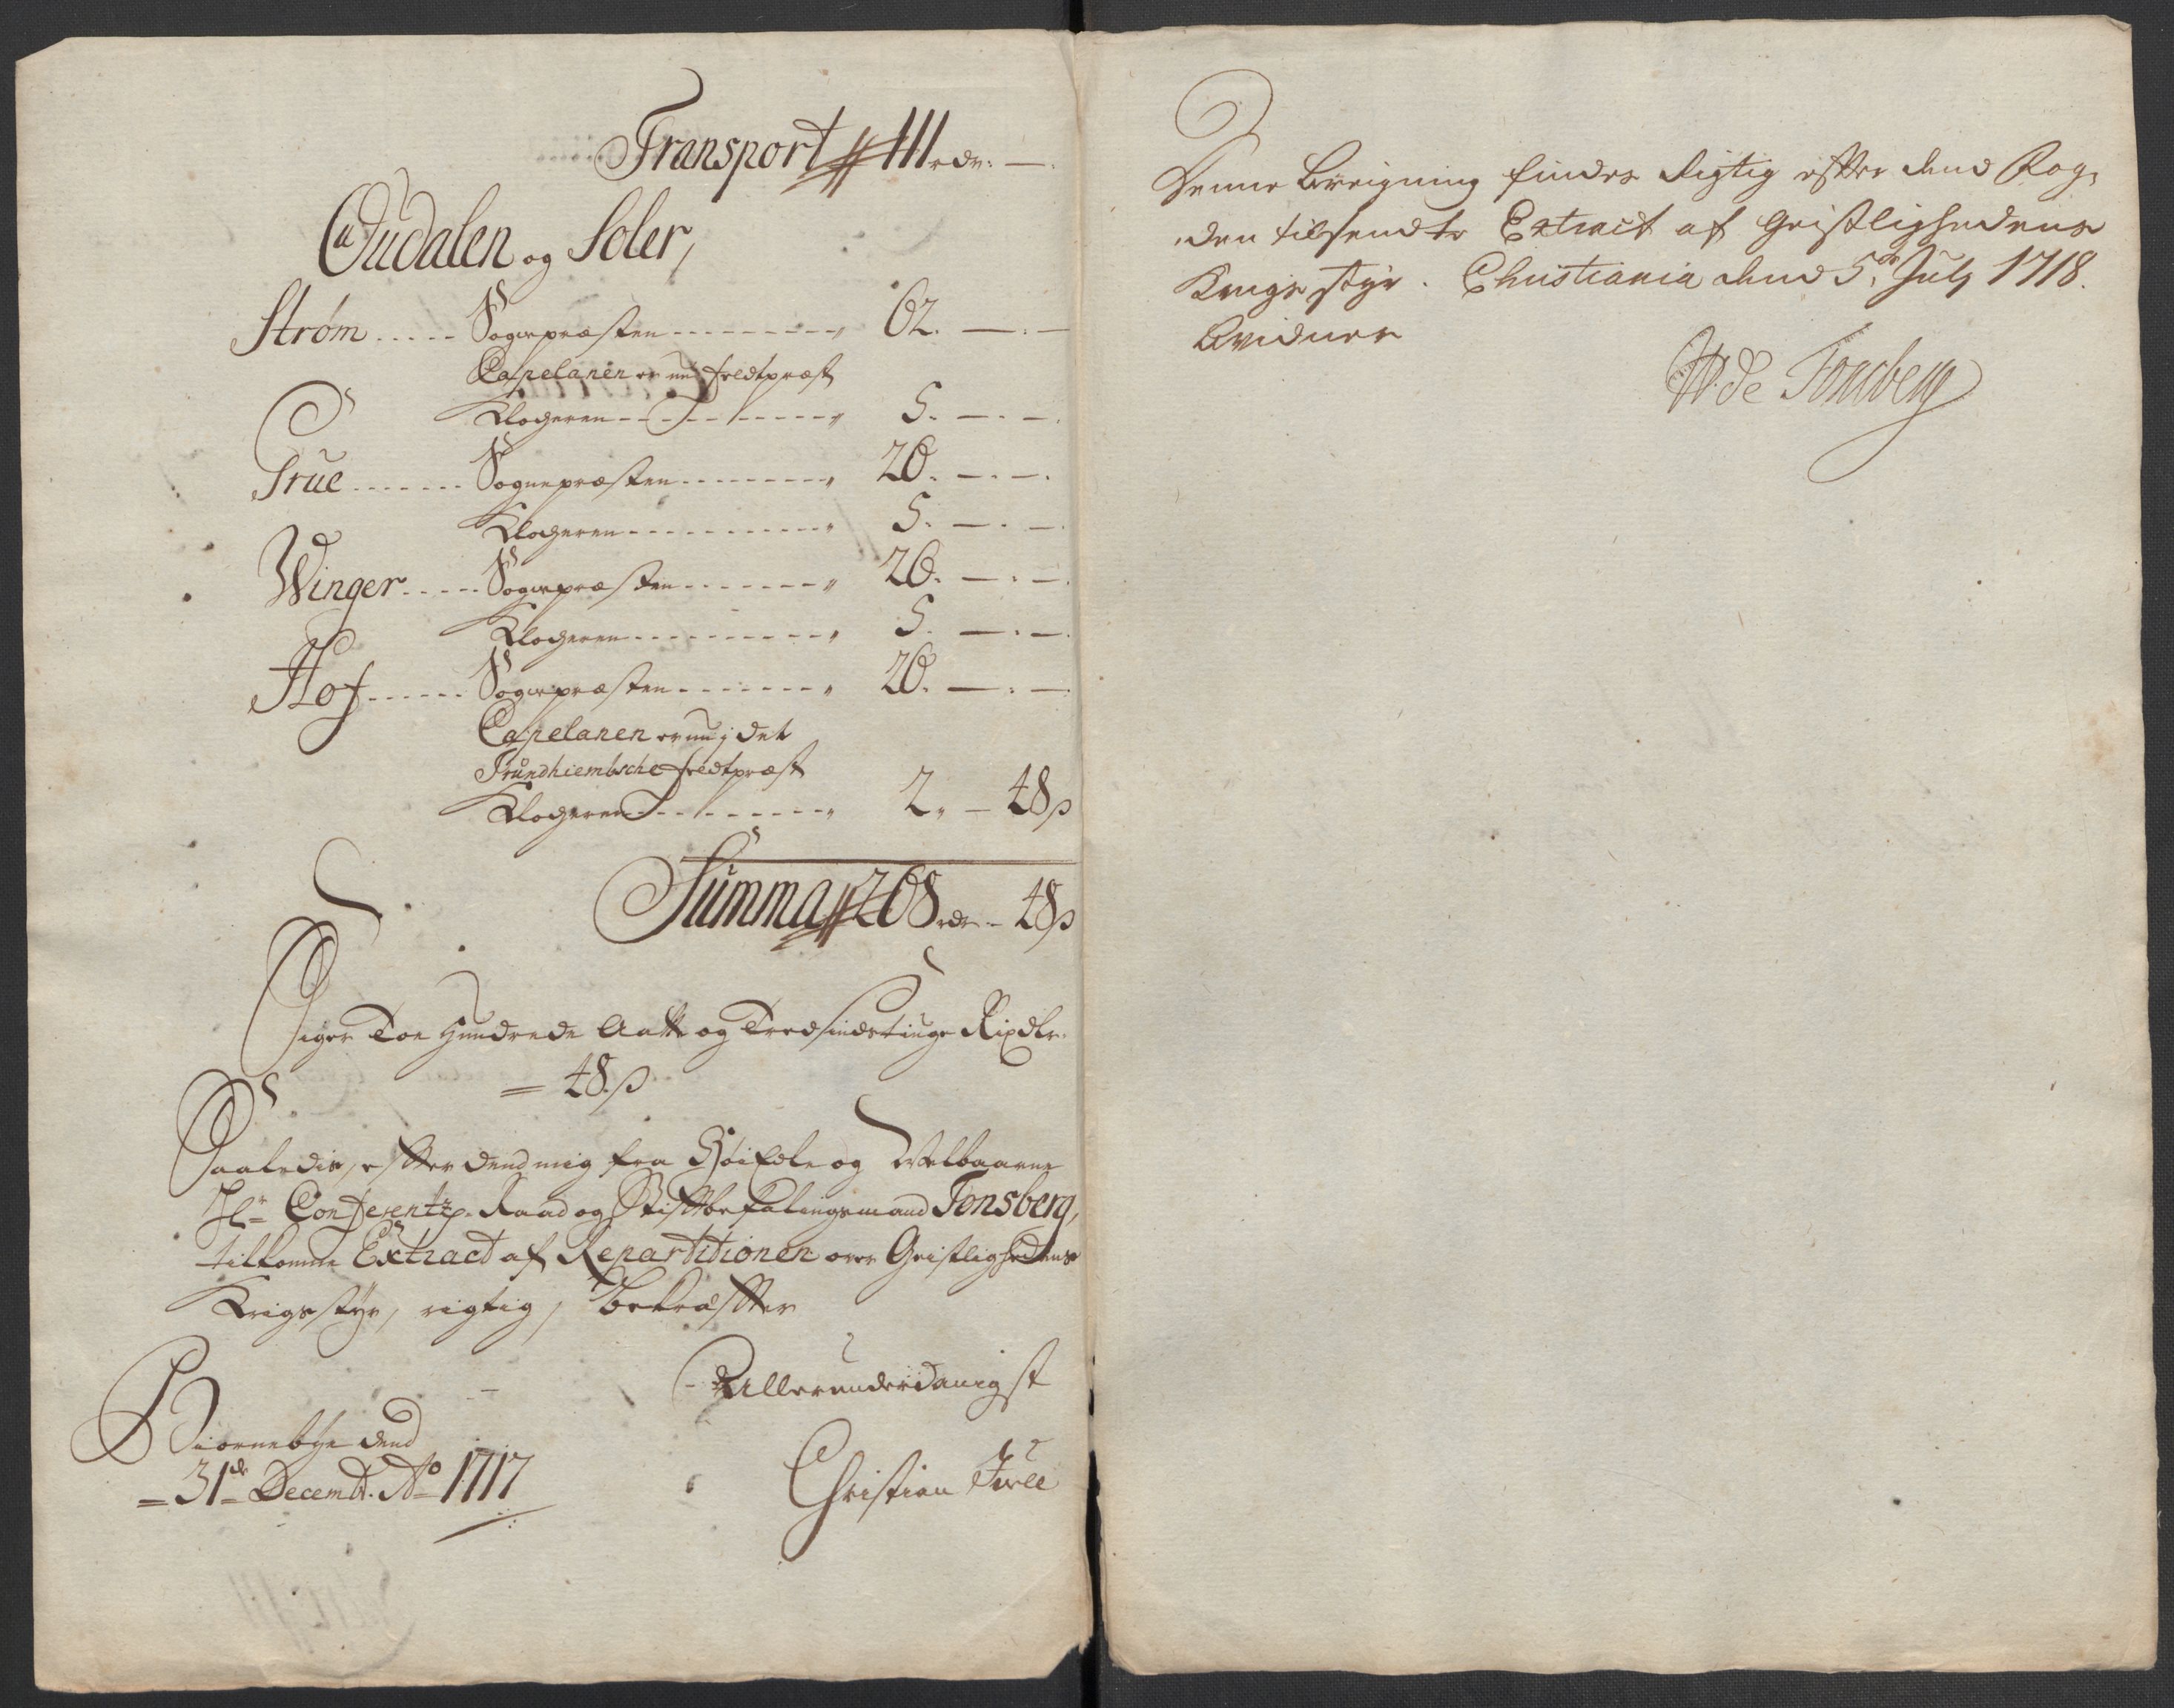 Transport 111 rdr. — .
Oudalen og Soler,
Strøm ..... Sognepræsten --------- 62. — . —
Capelanen er nu feldtpræst
Klogeren --------- 5. — . — .
Grue ....... Sognepræsten --------- 26. — . — .
Klogeren --------- 5. — . —
Winger ..... Sognepræsten --------- 26. — . — .
Klogeren --------- 5. — . — .
Hof ...... Sognepræsten --------- 26. — . —
Capelanen er nu i det
Trundhiembsche feldtpræst
Klogeren --------- 2. — 48 ß
Summa 268 rdr — 48 ß
Siger Toe Hundrede Aatte og Tredsindstiuge Rixdlr.
= 48 ß
Saaledis, efter dend mig fra HøiEdle og Welbaarne
Hr. Conferentz-Raad og Stiftbefalingsmand Tonsberg,
tilkomne Extract af Repartitionen over Geistlighedens
Krigsstyr, rigtig, bekræfter
Allerunderdanigst
Biørnebye dend
= 31de Decembr. Ao 1717
Christian Juell
Denne Bereigning findes Rigtig efter dend Fog-
den tilsendte Extract af Geistlighedens
Krigs styr. Christiania dend 5de July 1718.
Bevidner
W. de Tonsberg